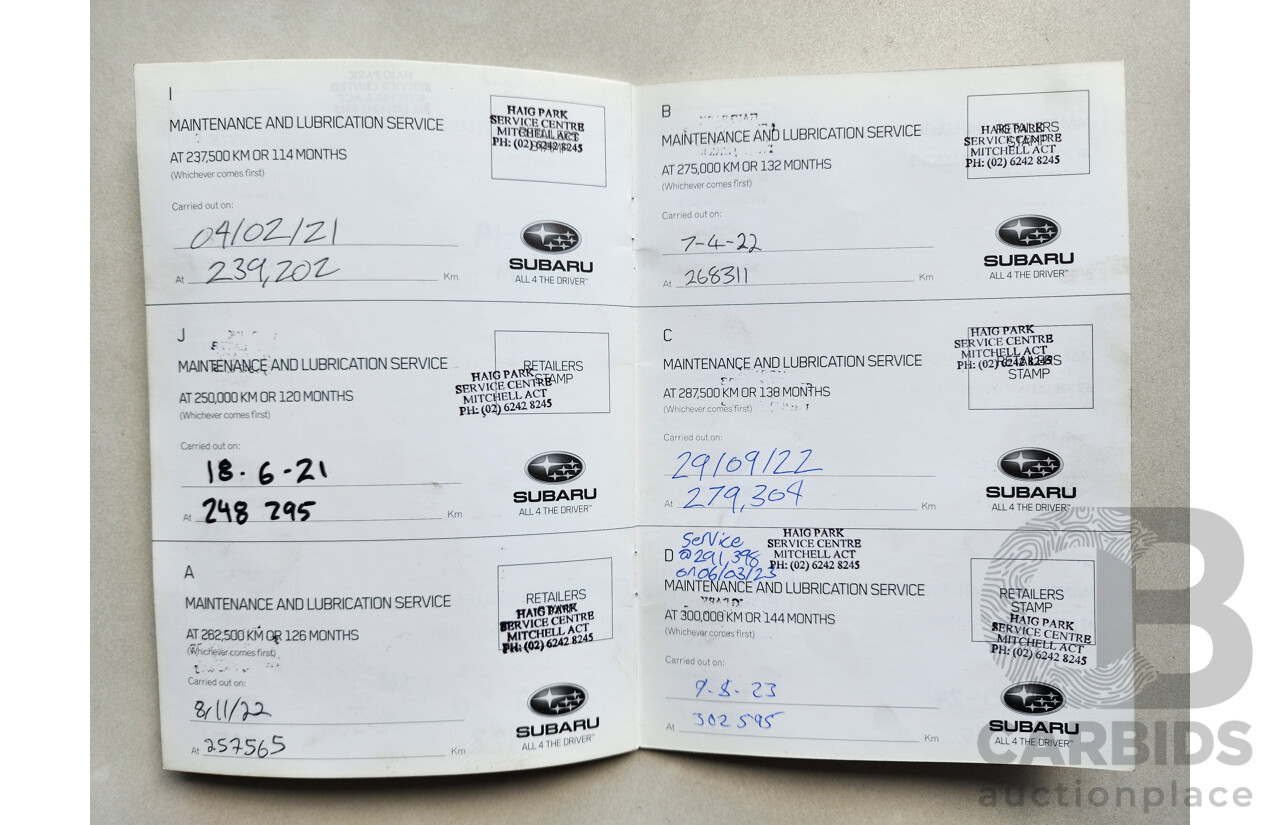 I
MAINTENANCE AND LUBRICATION SERVICE
AT 237,500 KM OR 114 MONTHS
(Whichever comes first)
HAIG PARK
SERVICE CENTRE
MITCHELL ACT
PH: (02) 6242 8245
Carried out on:
04/02/21
At 239,202 Km
SUBARU
ALL 4 THE DRIVER™
J
MAINTENANCE AND LUBRICATION SERVICE
AT 250,000 KM OR 120 MONTHS
(Whichever comes first)
RETAILERS
STAMP
HAIG PARK
SERVICE CENTRE
MITCHELL ACT
PH: (02) 6242 8245
Carried out on:
18-6-21
At 248 295 Km
SUBARU
ALL 4 THE DRIVER™
A
MAINTENANCE AND LUBRICATION SERVICE
AT 262,500 KM OR 126 MONTHS
(Whichever comes first)
RETAILERS
HAIG PARK
SERVICE CENTRE
MITCHELL ACT
PH: (02) 6242 8245
Carried out on:
8/11/22
At 257565 Km
SUBARU
ALL 4 THE DRIVER™
B
MAINTENANCE AND LUBRICATION SERVICE
AT 275,000 KM OR 132 MONTHS
(Whichever comes first)
RETAILERS
STAMP
HAIG PARK
SERVICE CENTRE
MITCHELL ACT
PH: (02) 6242 8245
Carried out on:
7-4-22
At 268311 Km
SUBARU
ALL 4 THE DRIVER™
C
MAINTENANCE AND LUBRICATION SERVICE
AT 287,500 KM OR 138 MONTHS
(Whichever comes first)
HAIG PARK
SERVICE CENTRE
MITCHELL ACT
PH: (02) 6242 8245
RETAILERS
STAMP
Carried out on:
29/09/22
At 279,304 Km
SUBARU
ALL 4 THE DRIVER™
Service
@ 291,398
on 06/03/23
HAIG PARK
SERVICE CENTRE
MITCHELL ACT
PH: (02) 6242 8245
D
MAINTENANCE AND LUBRICATION SERVICE
AT 300,000 KM OR 144 MONTHS
(Whichever comes first)
RETAILERS
STAMP
HAIG PARK
SERVICE CENTRE
MITCHELL ACT
PH: (02) 6242 8245
Carried out on:
9-8-23
At 302595 Km
SUBARU
ALL 4 THE DRIVER™
CARBIDS
auctionplace